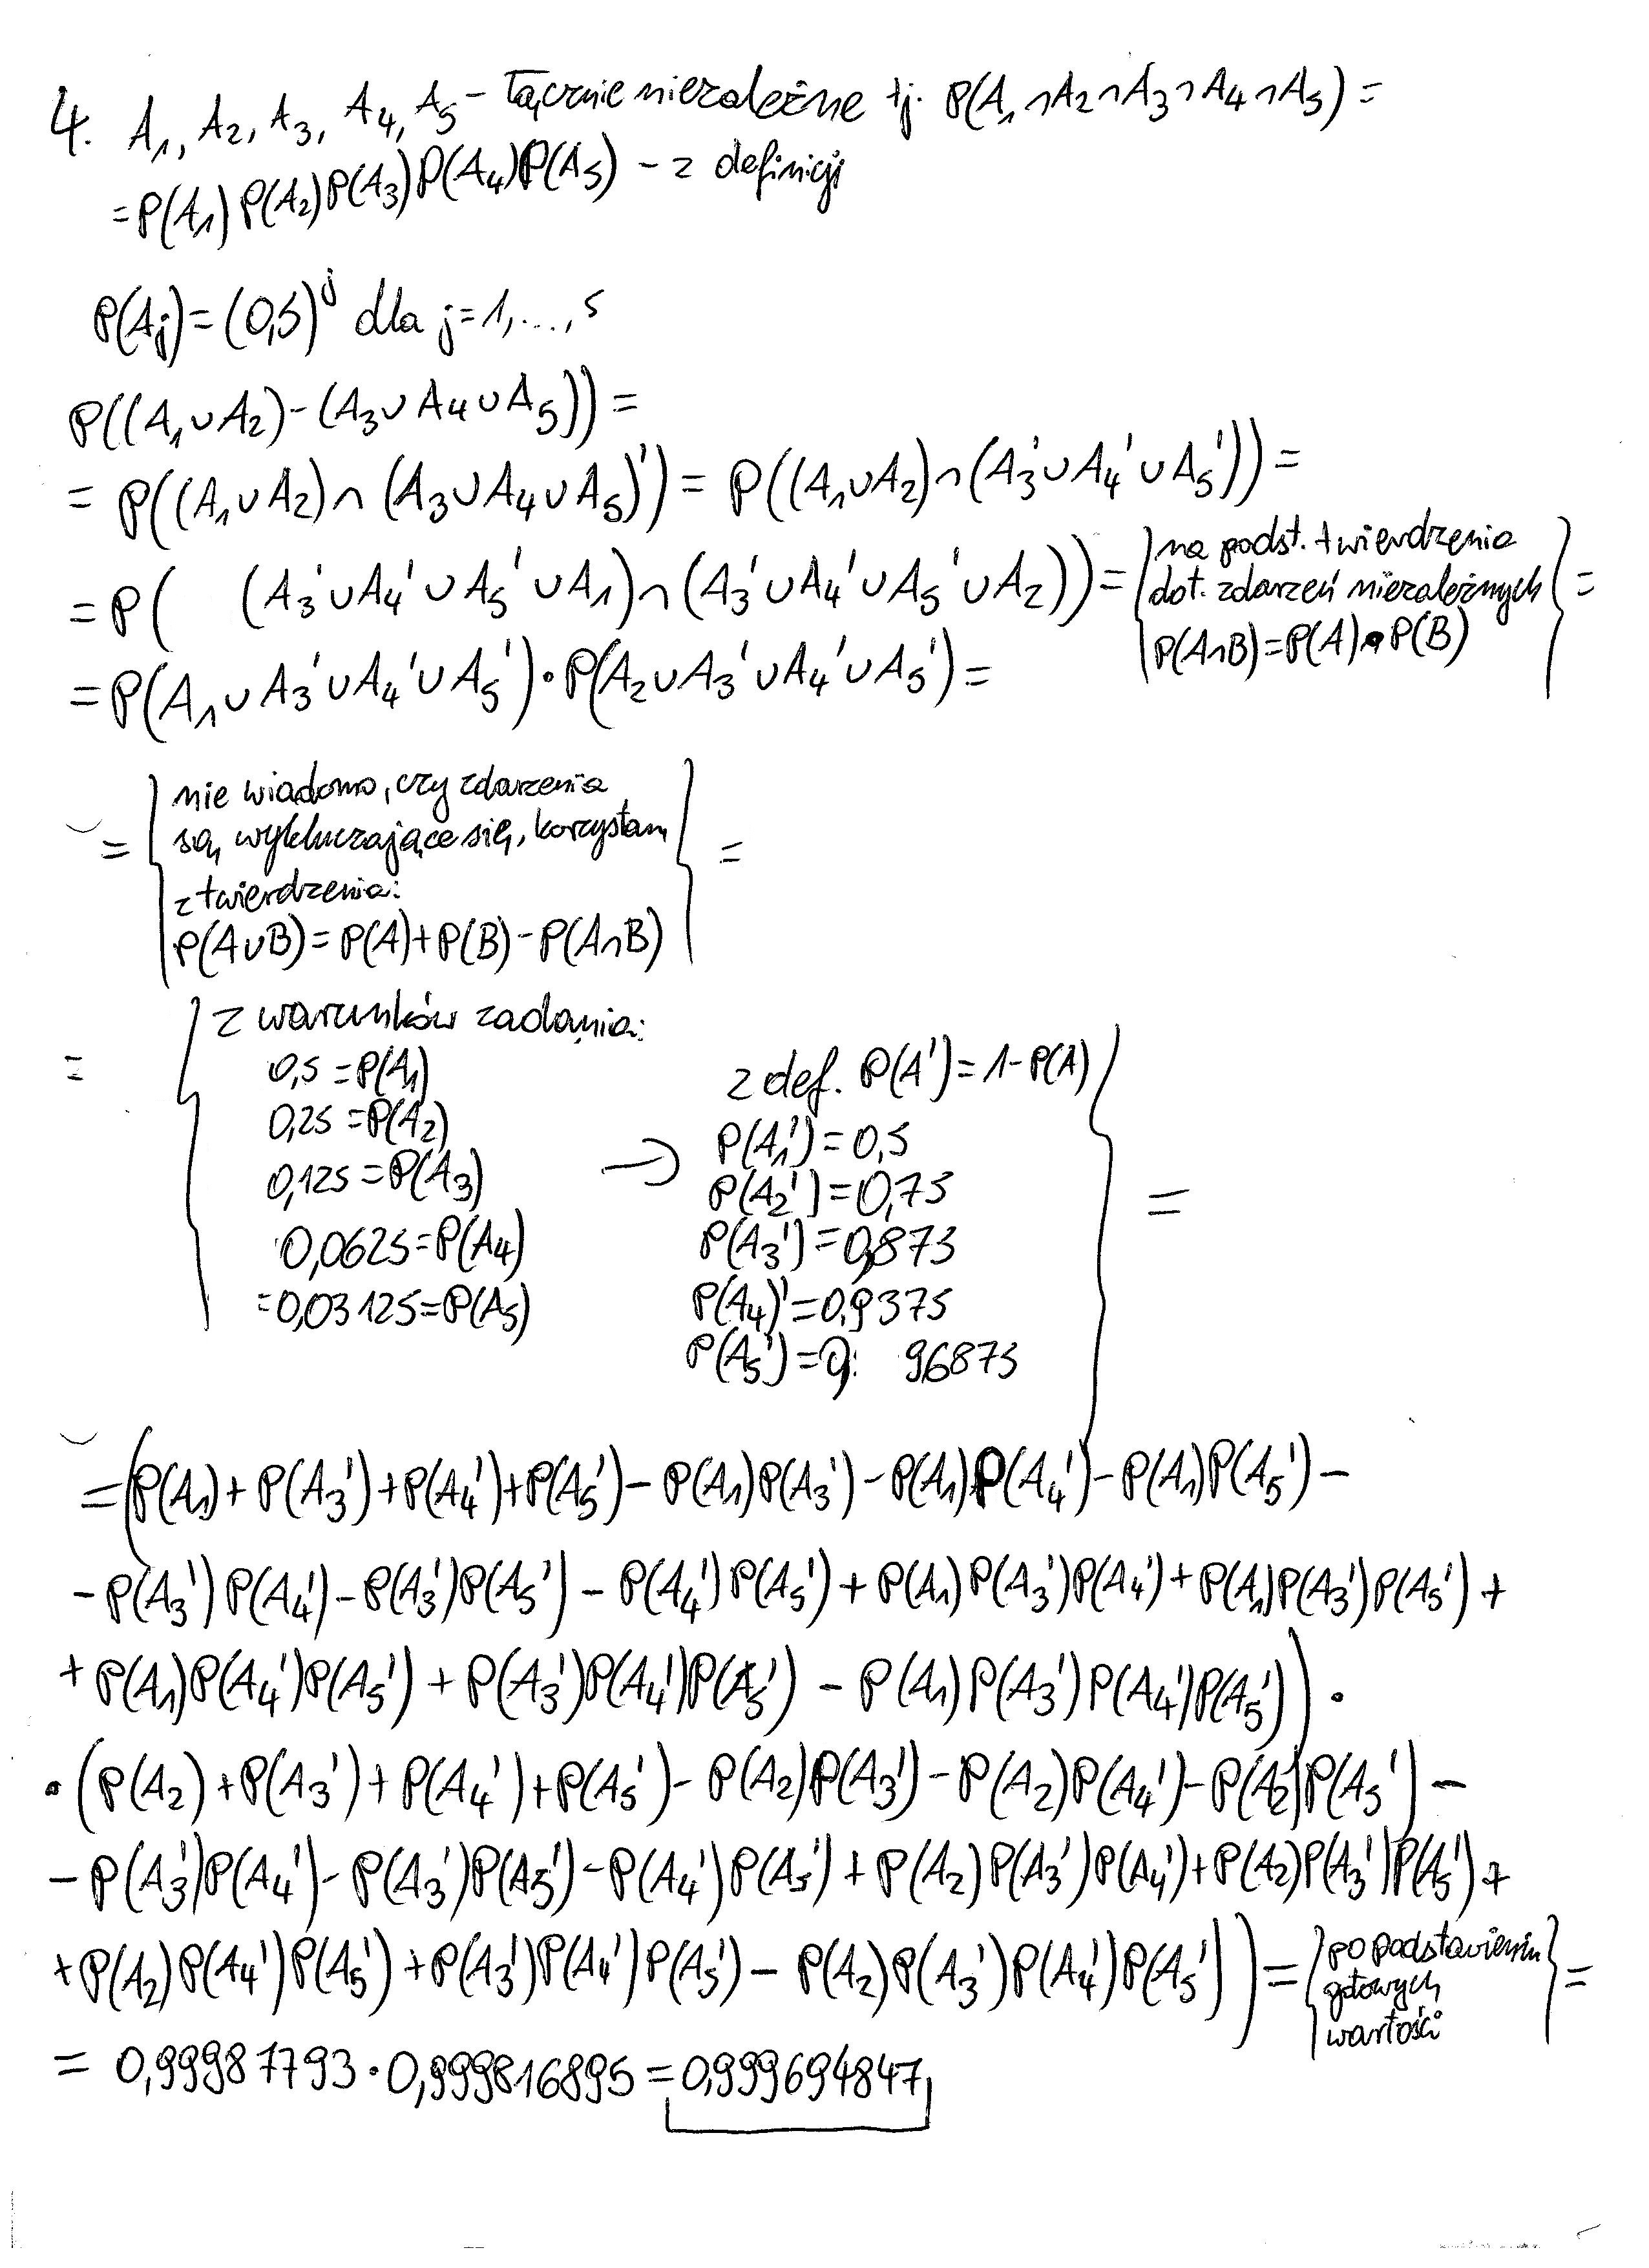 4. A₁, A₂, A₃, A₄, A₅ - łącznie niezależne tj. P(A₁∩A₂∩A₃∩A₄∩A₅) =
= P(A₁) P(A₂) P(A₃) P(A₄) P(A₅) - z definicji
P(Aj) = (0,5)ʲ dla j=1,...,5
P((A₁∪A₂)-(A₃∪A₄∪A₅)) =
= P((A₁∪A₂)∩(A₃∪A₄∪A₅)') = P((A₁∪A₂)∩(A₃'∪A₄'∪A₅')) =
= P( (A₃'∪A₄'∪A₅'∪A₁)∩(A₃'∪A₄'∪A₅'∪A₂)) = { na podst. twierdzenia
dot. zdarzeń niezależnych } =
P(A∩B)=P(A)•P(B)
= P(A₁∪A₃'∪A₄'∪A₅')•P(A₂∪A₃'∪A₄'∪A₅') =
nie wiadomo, czy zdarzenia
= { są wykluczające się, korzystam } =
z twierdzenia:
P(A∪B)=P(A)+P(B)-P(A∩B)
= { z warunków zadania:
0,5 = P(A₁)
0,25 = P(A₂)
0,125 = P(A₃)
0,0625 = P(A₄)
= 0,03125 = P(A₅)
→ z def. P(A') = 1-P(A)
P(A₁') = 0,5
P(A₂') = 0,75
P(A₃') = 0,875
P(A₄)' = 0,9375
P(A₅') = 0, 96875 } =
= (P(A₁)+P(A₃')+P(A₄')+P(A₅')-P(A₁)P(A₃')-P(A₁)P(A₄')-P(A₁)P(A₅')-
-P(A₃')P(A₄')-P(A₃')P(A₅')-P(A₄')P(A₅')+P(A₁)P(A₃')P(A₄')+P(A₁)P(A₃')P(A₅')+
+P(A₁)P(A₄')P(A₅')+P(A₃')P(A₄')P(A₅')-P(A₁)P(A₃')P(A₄')P(A₅'))•
•(P(A₂)+P(A₃')+P(A₄')+P(A₅')-P(A₂)P(A₃')-P(A₂)P(A₄')-P(A₂)P(A₅')-
-P(A₃')P(A₄')-P(A₃')P(A₅')-P(A₄')P(A₅')+P(A₂)P(A₃')P(A₄')+P(A₂)P(A₃')P(A₅')+
+P(A₂)P(A₄')P(A₅')+P(A₃')P(A₄')P(A₅')-P(A₂)P(A₃')P(A₄')P(A₅')) = { po podstawieniu
gotowych } =
wartości
= 0,99987793•0,999816895 = 0,999694847